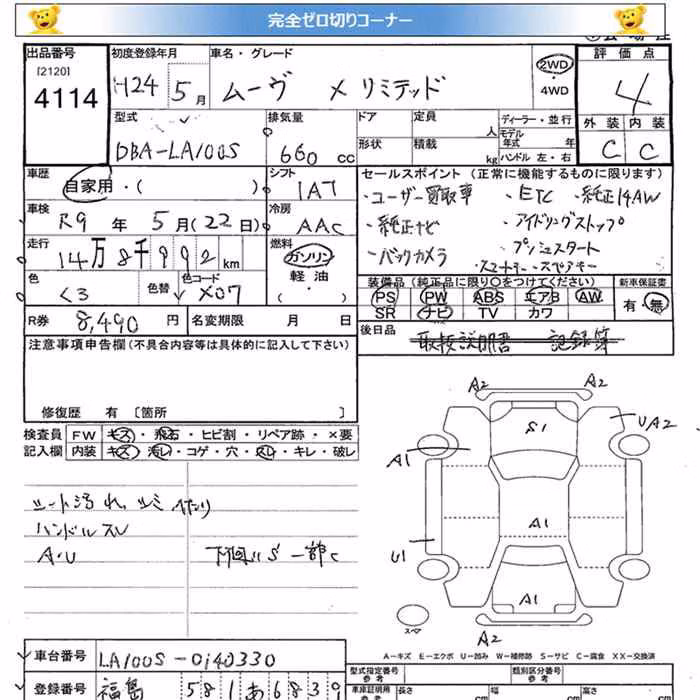 完全ゼロ切りコーナー
出品番号 初度登録年月 車名・グレード 評価点
[2120]
4114 H24 5月 ムーヴ X リミテッド 2WD 4
4WD
型式 排気量 ドア 定員 人 ディーラー・並行 外装 内装
モデル年式 年
DBA-LA100S 660 cc 形状 積載 kg ハンドル 左・右 C C
車歴 シフト セールスポイント (正常に機能するものに限ります)
自家用・( ) IAT ・ユーザー買取車 ・ETC ・純正14AW
車検 R9 年 5月(22日) 冷房 AAC ・純正ナビ ・アイドリングストップ
走行 14万8千992km 燃料 ガソリン ・バックカメラ ・プッシュスタート
軽油 ・スマートキー・スペアキー
色 色替 色コード ( )
クロ X07
装備品 (純正品に限り○をつけてください) 新車保証書
PS PW ABS エアB AW 有・無
SR ナビ TV カワ
R券 8,490 円 名変期限 月 日 後日品 取扱説明書 記録簿
注意事項申告欄(不具合内容等は具体的に記入して下さい)
修復歴 有 〔箇所 〕
検査員 FW キズ・飛石・ヒビ割・リペア跡・×要
記入欄 内装 キズ・汚レ・コゲ・穴・スレ・キレ・破レ
シート汚れ、シミ ヘタリ
ハンドルスレ
A・U 下回りS 一部C
A2 A2
S1 UA2
A1
A1
U1
A1
スペア A2
A-キズ E-エクボ U-凹み W-補修跡 S-サビ C-腐食 XX-交換済
車台番号 LA100S-0140330
登録番号 福島 581 あ6839
型式指定番号 参考 類別区分番号 参考
車庫証明用 参考 長さ cm 幅 cm 高さ cm